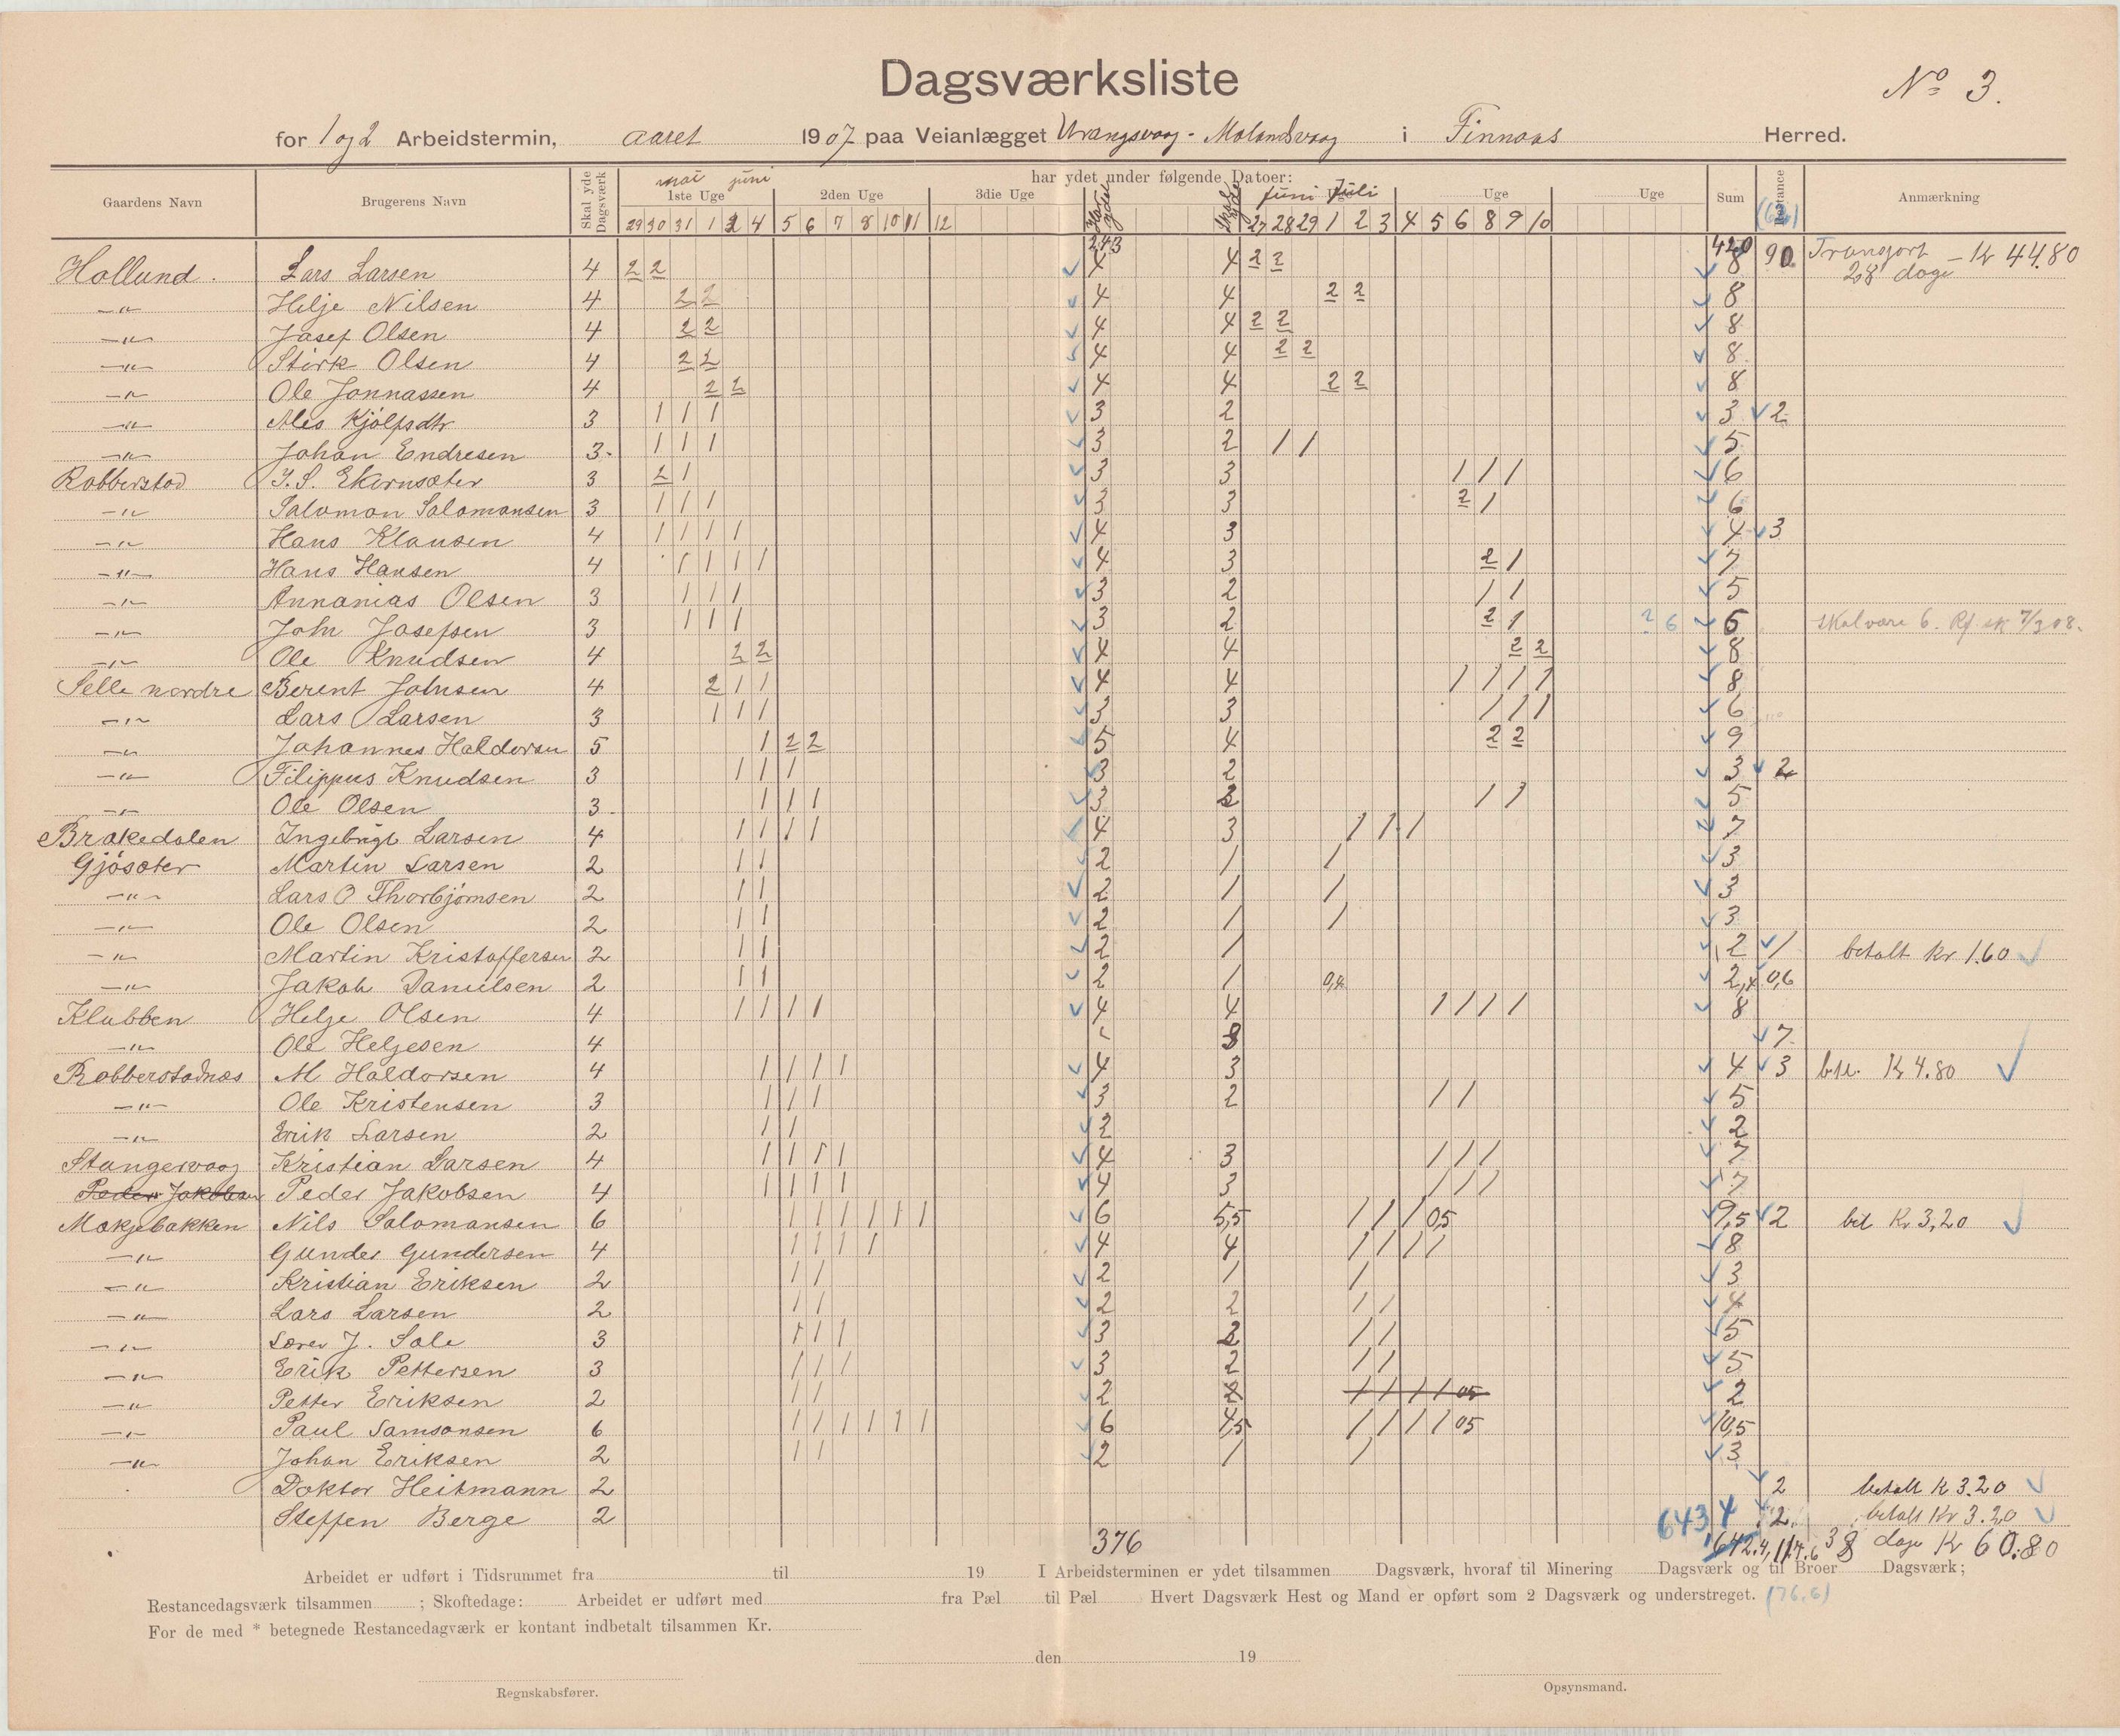 Dagsværksliste
No 3.
for 1 og 2 Arbeidstermin, aaret 1907 paa Veianlægget Urangsvaag - Molandsvaag i Finnaas Herred.
Gaardens Navn Brugerens Navn Skal yde Dagsværk har ydet under følgende Datoer: Sum Restance Anmærkning
mai juni 1ste Uge 2den Uge 3die Uge juni Juli Uge Uge Uge
29 30 31 1 2 4 5 6 7 8 10 11 12 27 28 29 1 2 3 4 5 6 8 9 10
243 420 90 Transport 28 dage - Kr 44.80
Hollund. Lars Larsen 4 2 2 4 4 2 2 8
-"- Helje Nilsen 4 2 2 4 4 2 2 8
-"- Josef Olsen 4 2 2 4 4 2 2 8
-"- Störk Olsen 4 2 2 4 4 2 2 8
-"- Ole Jonnassen 4 2 2 4 4 2 2 8
-"- Ales Kjölfsdtr 3 1 1 1 3 2 3 2
-"- Johan Endresen 3 1 1 1 3 2 1 1 5
Robberstad J. S. Ekornsæter 3 2 1 3 3 1 1 1 6
-"- Salomon Salomonsen 3 1 1 1 3 3 2 1 6
-"- Hans Klausen 4 1 1 1 1 4 3 4 3
-"- Hans Hansen 4 1 1 1 1 4 3 2 1 7
-"- Annanias Olsen 3 1 1 1 3 2 1 1 5
-"- John Josefsen 3 1 1 1 3 2 2 1 ? 6 6 skal være 6.
-"- Ole Knudsen 4 2 2 4 4 2 2 8
Selle nordre Berent Johnsen 4 2 1 1 4 4 1 1 1 1 8
-"- Lars Larsen 3 1 1 1 3 3 1 1 1 6
-"- Johannes Haldorsen 5 1 2 2 5 4 2 2 9
-"- Filippus Knudsen 3 1 1 1 3 2 3 2
-"- Ole Olsen 3 1 1 1 3 2 1 1 5
Brakedalen Ingebrigt Larsen 4 1 1 1 1 4 3 1 1 1 7
Gjösæter Martin Larsen 2 1 1 2 1 1 3
-"- Lars O Thorbjörnsen 2 1 1 2 1 1 3
-"- Ole Olsen 2 1 1 2 1 1 3
-"- Martin Kristoffersen 2 1 1 2 1 2 1 betalt Kr 1.60
-"- Jakob Danielsen 2 1 1 2 1 0,4 2,4 0,6
Klubben Helge Olsen 4 1 1 1 1 4 4 1 1 1 1 8
-"- Ole Heljesen 4 3 7
Robberstadnæs M Haldorsen 4 1 1 1 1 4 3 4 3 btl. Kr 4.80
-"- Ole Kristensen 3 1 1 1 3 2 1 1 5
-"- Erik Larsen 2 1 1 2 2
Stangervaag Kristian Larsen 4 1 1 1 1 4 3 1 1 1 7
Peder Jakobsen Peder Jakobsen 4 1 1 1 1 4 3 1 1 1 7
Mækjebakken Nils Salomansen 6 1 1 1 1 1 1 6 5,5 1 1 1 05 9,5 2 btl Kr 3,20
-"- Gunder Gundersen 4 1 1 1 1 4 4 1 1 1 1 8
-"- Kristian Eriksen 2 1 1 2 1 1 3
-"- Lars Larsen 2 1 1 2 2 1 1 4
-"- Lærer J. Sole 3 1 1 1 3 2 1 1 5
-"- Erik Pettersen 3 1 1 1 3 2 1 1 5
-"- Petter Eriksen 2 1 1 2 1 1 1 1 05 2
-"- Paul Samsonsen 6 1 1 1 1 1 1 6 4,5 1 1 1 1 05 10,5
-"- Johan Eriksen 2 1 1 2 1 1 3
Doktor Heitmann 2 2 betalt K 3.20
Steffen Berge 2 643 4 2 betalt Kr 3.20
376 642.4 114.6 38 dage Kr 60.80
Arbeidet er udført i Tidsrummet fra til 19 I Arbeidsterminen er ydet tilsammen Dagsværk, hvoraf til Minering Dagsværk og til Broer Dagsværk;
Restancedagsværk tilsammen ; Skoftedage: Arbeidet er udført med fra Pæl til Pæl Hvert Dagsværk Hest og Mand er opført som 2 Dagsværk og understreget. (76,6)
For de med * betegnede Restancedagværk er kontant indbetalt tilsammen Kr.
den 19
Regnskabsfører. Opsynsmand.